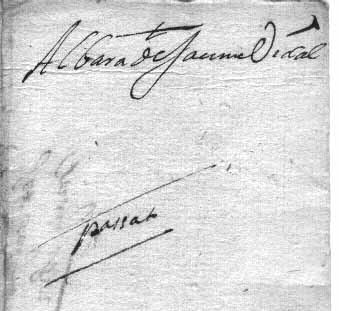 Albara de Jaume Vidal
passat